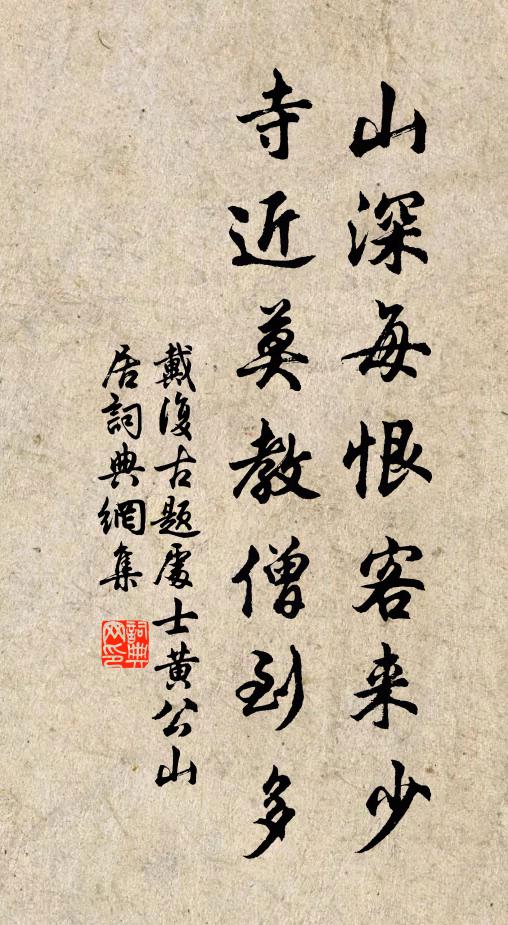 山深每恨客来少
寺近莫教僧到多
戴復古题處士黄公山
居詞典網集
詞典
网印